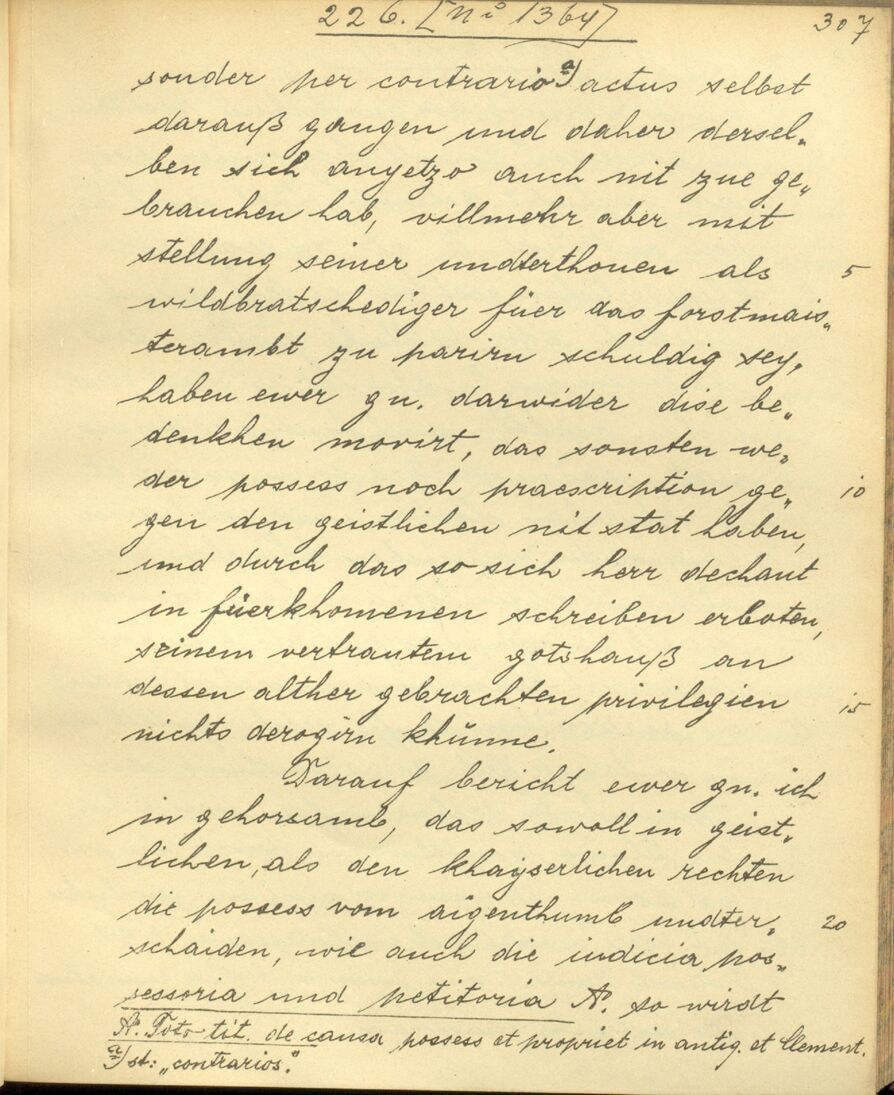 226. [No 1364] 307
sonder per contrario a) actus selbst
darauß gangen und daher dersel„
ben sich anyetzo auch nit zue ge„
brauchen hab, villmehr aber mit
stellung seiner undterthonen als 5
wildbratschediger füer das forstmais„
terambt zu parirn schuldig sey,
haben ewer gn. darwider dise be„
denkhen movirt, das sonsten we„
der possess noch praescription ge„ 10
gen den geistlichen nit stat haben,
und durch das so sich herr dechant
in füerkhomenen schreiben erboten,
seinem vertrautem gotshauß an
dessen alther gebrachten privilegien 15
nichts derogirn khünne.
Darauf bericht ewer gn. ich
in gehorsamb, das sowoll in geist„
lichen, als den khayserlichen rechten
die possess vom aigenthumb undter„ 20
schaiden, wie auch die iudicia pos„
sessoria und petitoria A. so wirdt
A. Toto tit. de causa possess et propriet in antiq. et Clement.
a) st: „contrarios."